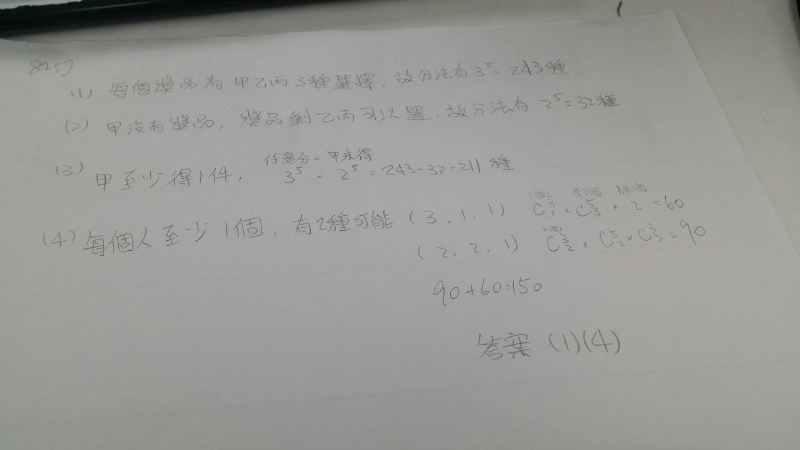 (1) 每個獎品有甲乙丙3種選擇,故分法有3⁵=243種
(2) 甲沒有獎品,獎品剩乙丙可以選,故分法有 2⁵=32種
任意分-甲未得
(3) 甲至少得1件, 3⁵-2⁵=243-32=211種
(4) 每個人至少1個,有2種可能 (3,1,1) C³₁×C⁵₃×2=60
(2,2,1) C³₂×C⁵₂×C³₂=90
90+60=150
答案 (1)(4)